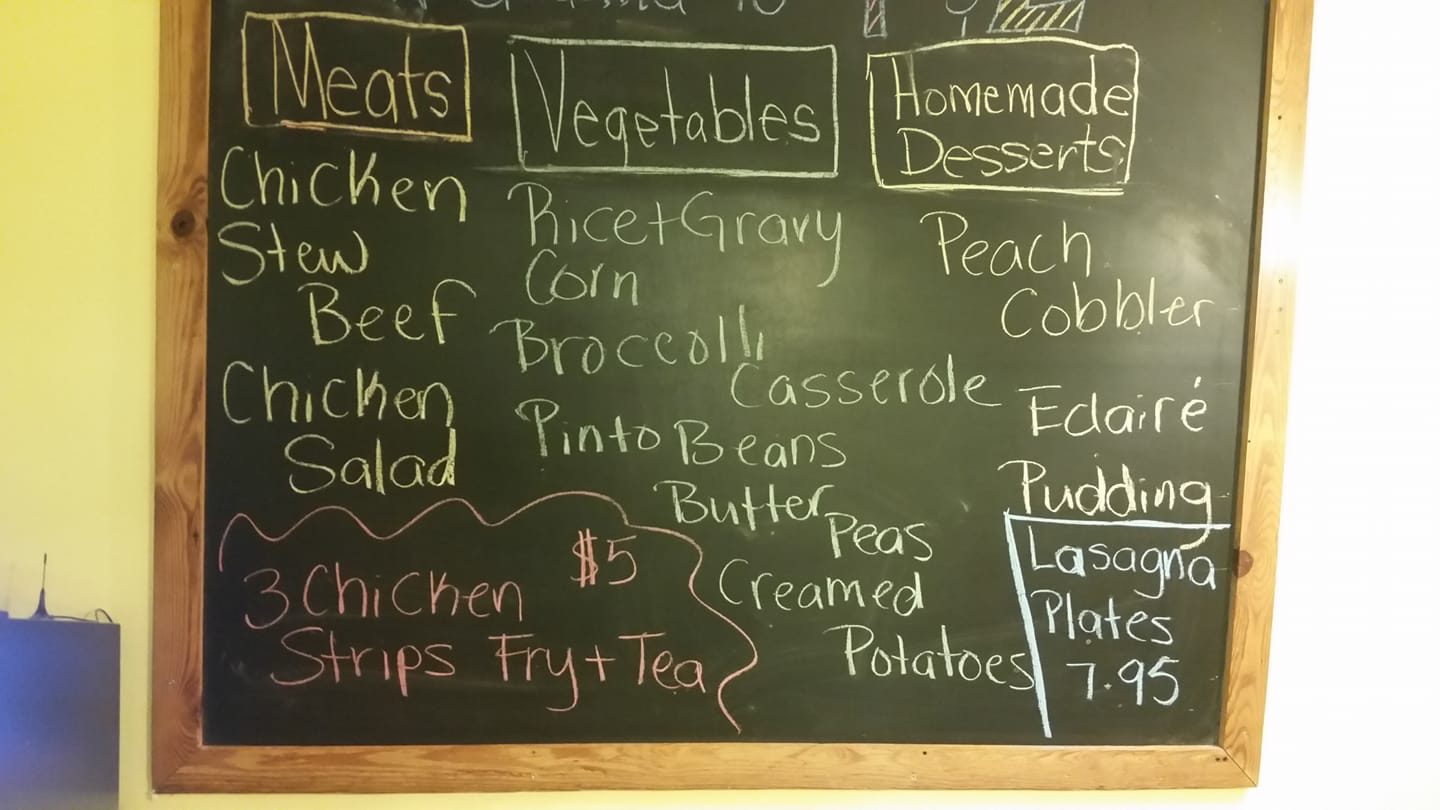 Meats
Chicken
Stew
Beef
Chicken
Salad
3 Chicken $5
Strips Fry + Tea
Vegetables
Rice + Gravy
Corn
Broccolli
Casserole
Pinto Beans
Butter
Peas
Creamed
Potatoes
Homemade
Desserts
Peach
Cobbler
Eclairé
Pudding
Lasagna
Plates
7.95